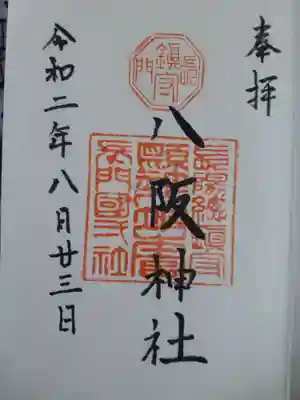 奉拝
鎮守
門
八阪神社
令和二年八月廿三日